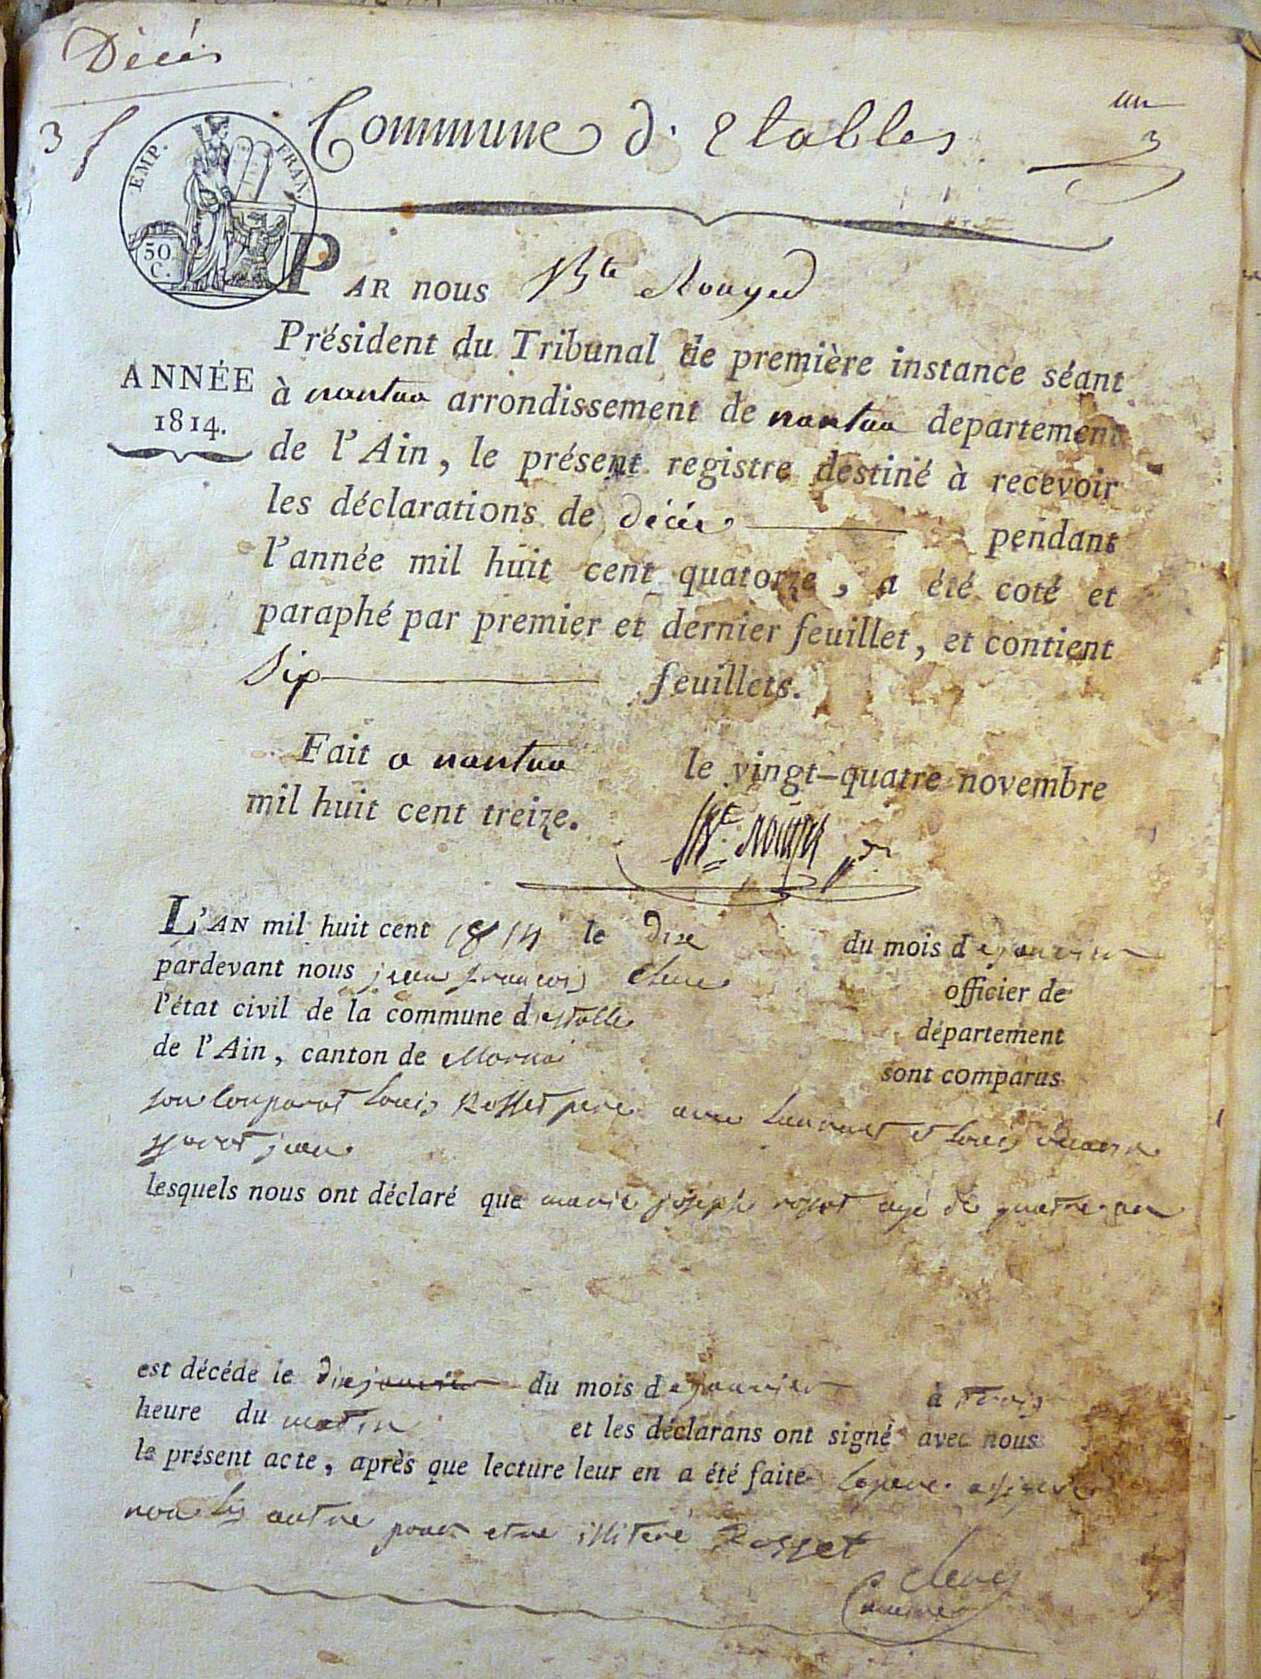 Décés
un
3
3
Commune d'Etables
EMP. FRAN.
50
C.
PAR nous Bte Rouyer
Président du Tribunal de première instance séant
ANNÉE
1814.
à nantua arrondissement de nantua departement
de l'Ain, le présent registre destiné à recevoir
les déclarations de décés pendant
l'année mil huit cent quatorze, a été coté et
paraphé par premier et dernier feuillet, et contient
Six feuillets.
Fait a nantua le vingt-quatre novembre
mil huit cent treize.
L'AN mil huit cent 1814 le dix du mois de janvier
pardevant nous jean françois officier de
l'état civil de la commune d département
de l'Ain, canton de sont comparus
Louis Rosset pere avec et Louis
jean
lesquels nous ont déclaré que marie joseph rosset agé de quatre an
est décéde le dix janvier du mois de janvier à trois
heure du matin et les déclarans ont signé avec nous
le présent acte, après que lecture leur en a été faite Le pere a signé
non les autre pour etre illiteré Rosset